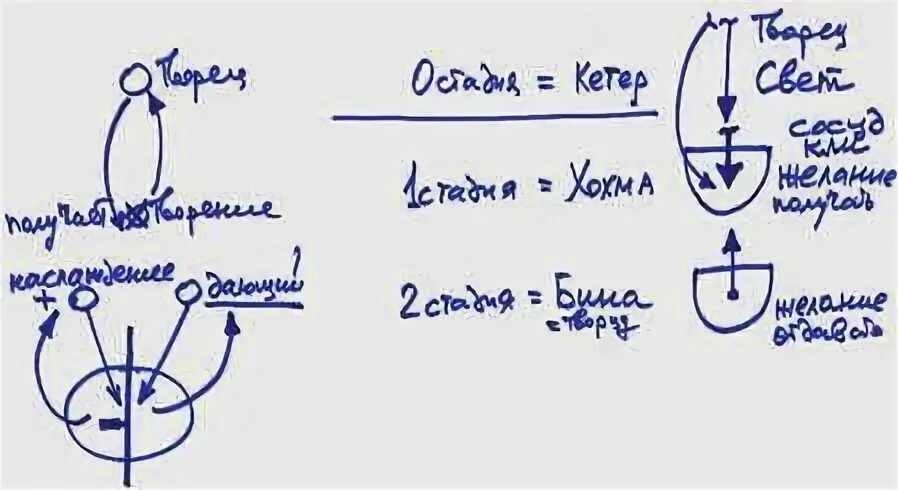 Творец
получает Творение
наслаждение
+
дающий
-
0 стадия = Кетер
1 стадия = Хохма
2 стадия = Бина
= творцу
Творец
Свет
сосуд
кли
желание
получать
желание
отдавать